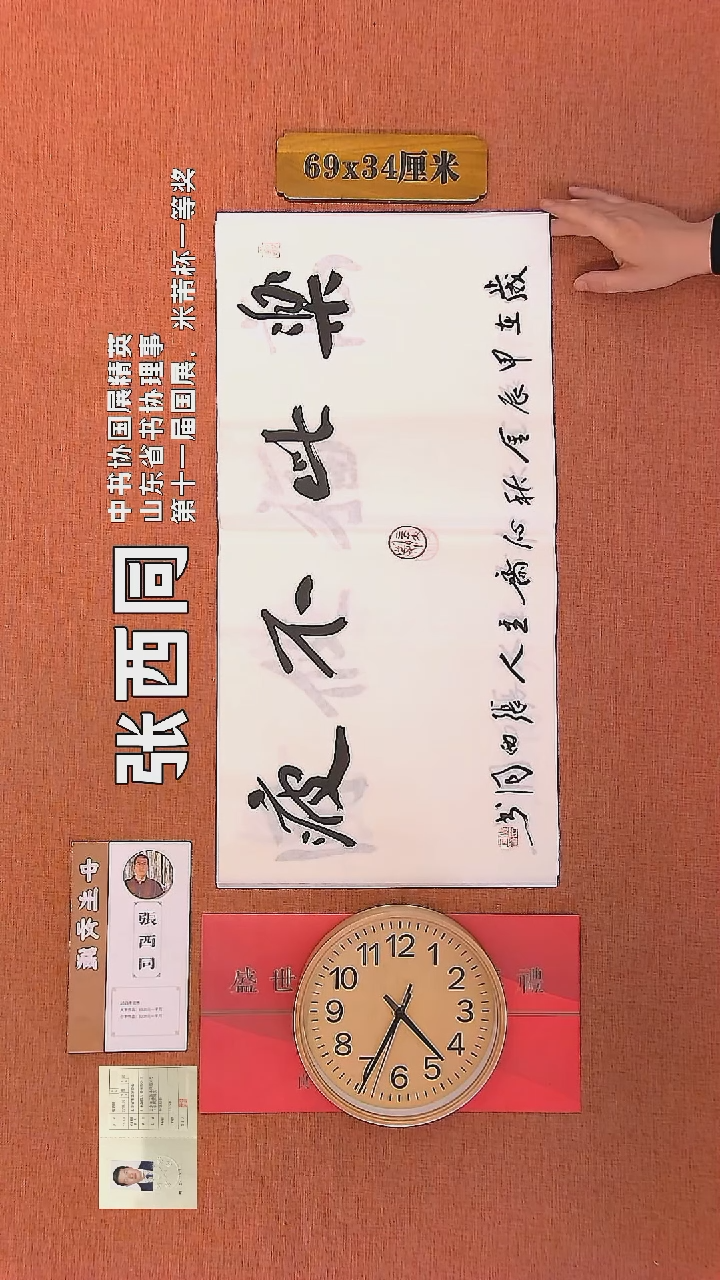 69x34厘米
樂此不疲
歲在甲辰金秋心齋主人張西同書
张西同
中书协国展精英
山东省书协理事
第十一届国展、米芾杯一等奖
張西同
盛世
禮
12
1
2
3
4
5
6
7
8
9
10
11